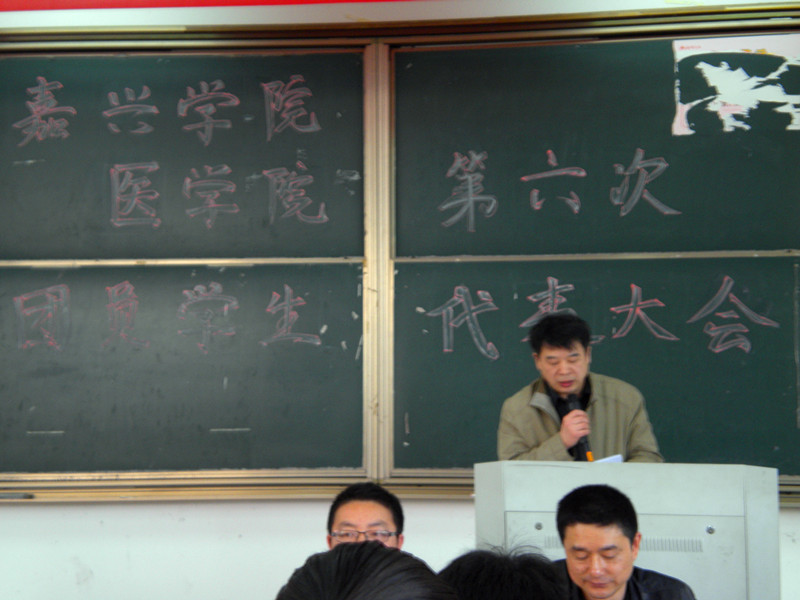 嘉兴学院
医学院 第六次
团员学生 代表大会